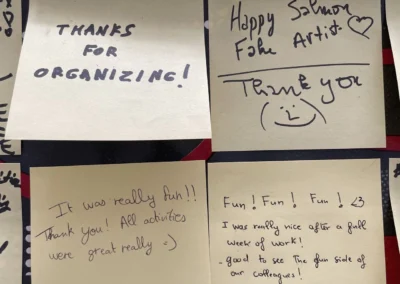 THANKS
FOR
ORGANIZING!
Happy Salmon
Fake Artist ♡
Thank you
It was really fun!!
Thank you! All activities
were great really :)
Fun! Fun! Fun! <3
I was really nice after a full
week of work!
- good to see the fun side of
our colleagues!